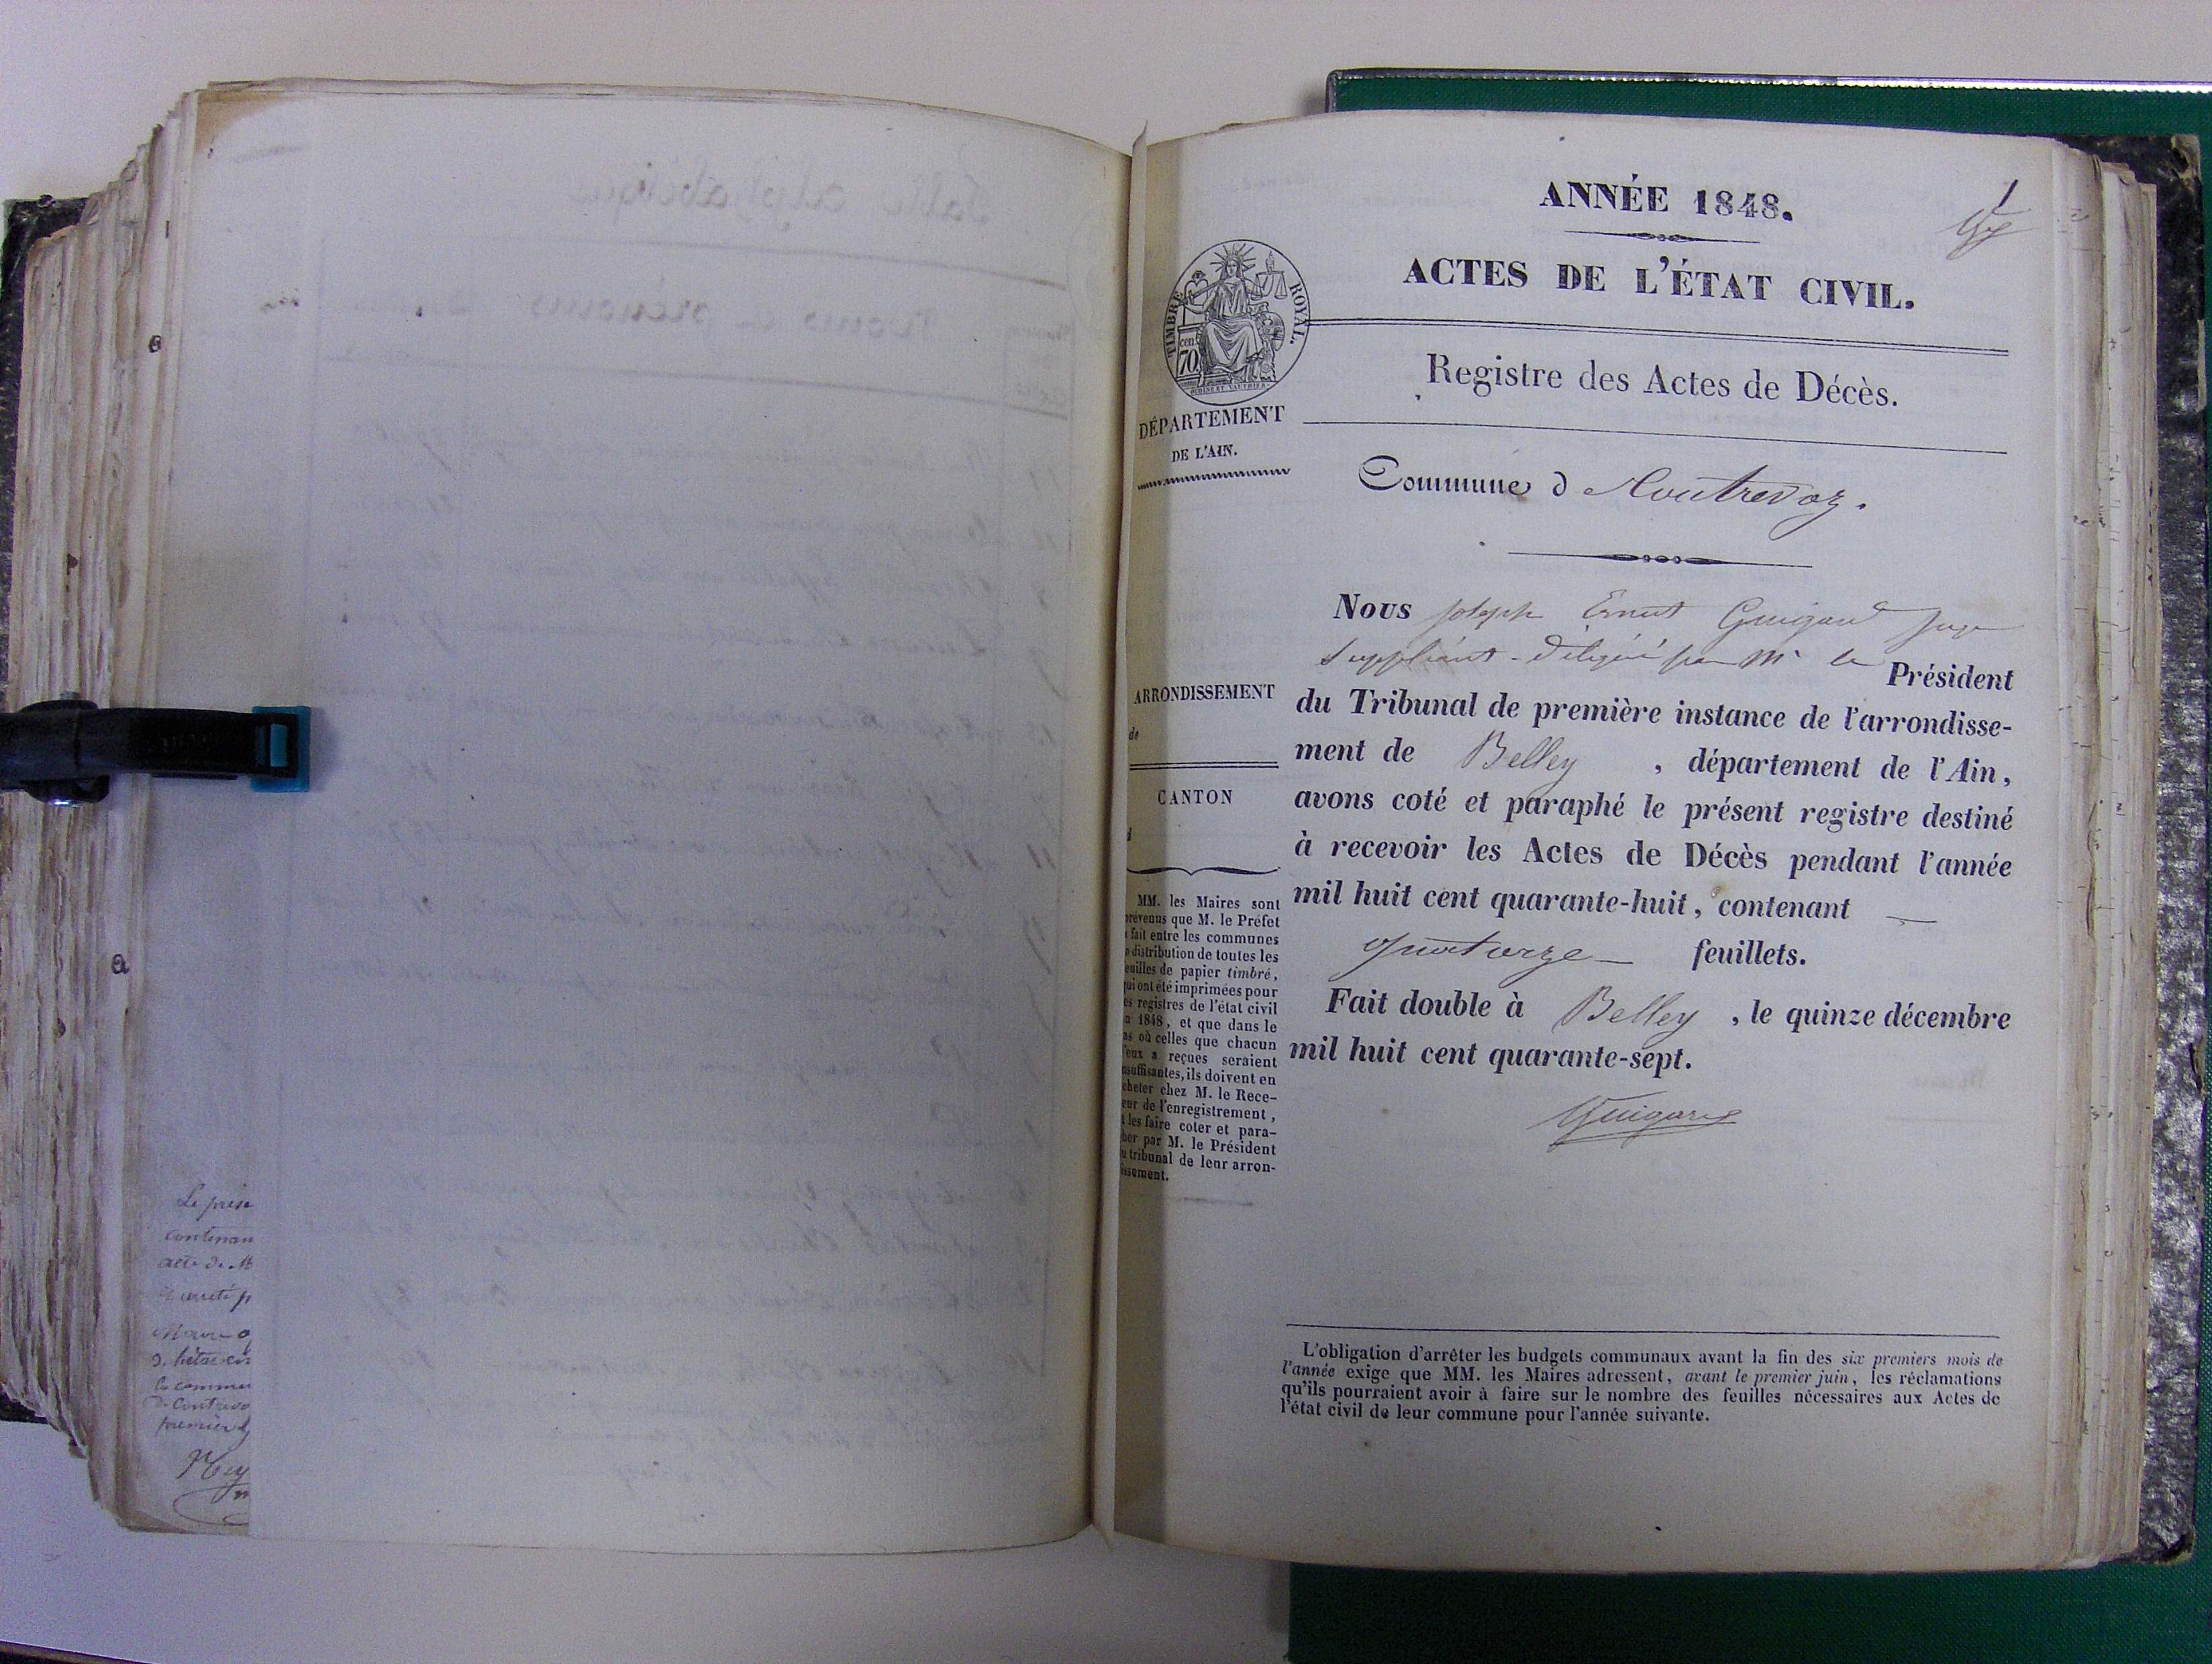 Le prése
contenan
acte de M
Mairie
la commu
de Contrevo
premier
ANNÉE 1848.
1
ACTES DE L'ÉTAT CIVIL.
TIMBRE ROYAL.
cen
70
Registre des Actes de Décès.
DÉPARTEMENT
DE L'AIN.
Commune d Contrevoz.
Nous Joseph Ernest Guigard Juge
Suppléant délégué par Mr le Président
du Tribunal de première instance de l'arrondisse-
ment de Belley , département de l'Ain,
avons coté et paraphé le présent registre destiné
à recevoir les Actes de Décès pendant l'année
mil huit cent quarante-huit, contenant
quatorze feuillets.
Fait double à Belley , le quinze décembre
mil huit cent quarante-sept.
Guigard
ARRONDISSEMENT
de
CANTON
d
MM. les Maires sont
prévenus que M. le Préfet
a fait entre les communes
a distribution de toutes les
euilles de papier timbré,
ui ont été imprimées pour
es registres de l'état civil
n 1848, et que dans le
as où celles que chacun
'eux a reçues seraient
nsuffisantes, ils doivent en
cheter chez M. le Rece-
eur de l'enregistrement,
t les faire coter et para-
her par M. le Président
u tribunal de leur arron-
issement.
L'obligation d'arrêter les budgets communaux avant la fin des six premiers mois de
l'année exige que MM. les Maires adressent, avant le premier juin, les réclamations
qu'ils pourraient avoir à faire sur le nombre des feuilles nécessaires aux Actes de
l'état civil de leur commune pour l'année suivante.